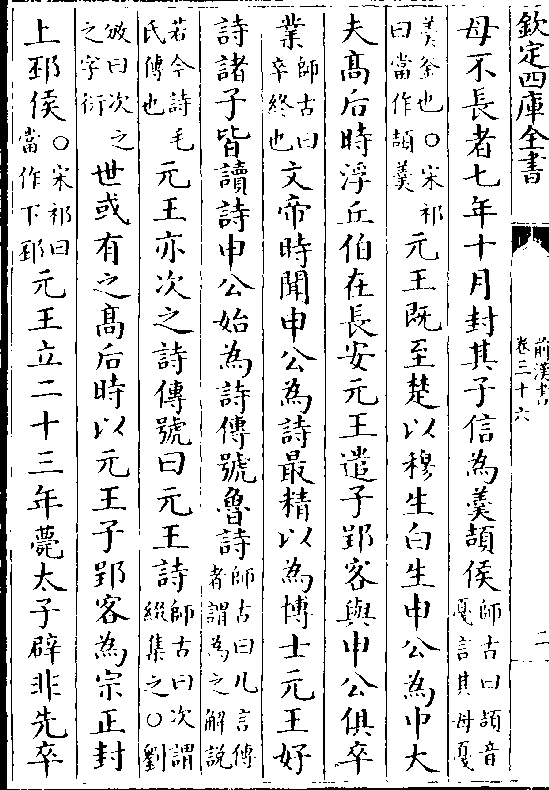 欽定四庫全書
前漢書
卷三十六
二
母不長者七年十月封其子信為羮頡侯師古曰頡音戞言其母戞
羮釡也○宋祁曰當作頡羮元王既至楚以穆生白生申公為中大
夫髙后時浮丘伯在長安元王遣子郢客與申公俱卒
業師古曰卒終也文帝時聞申公為詩最精以為博士元王好
詩諸子皆讀詩申公始為詩傳號魯詩師古曰凡言傳者謂為之解説
若今詩毛氏傳也元王亦次之詩傳號曰元王詩師古曰次謂綴集之○劉
攽曰次之之字衍世或有之髙后時以元王子郢客為宗正封
上邳侯○宋祁曰當作下邳元王立二十三年薨太子辟非先卒